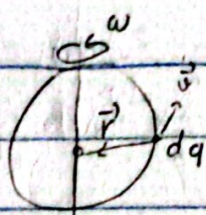 ω
v⃗
r⃗
dq